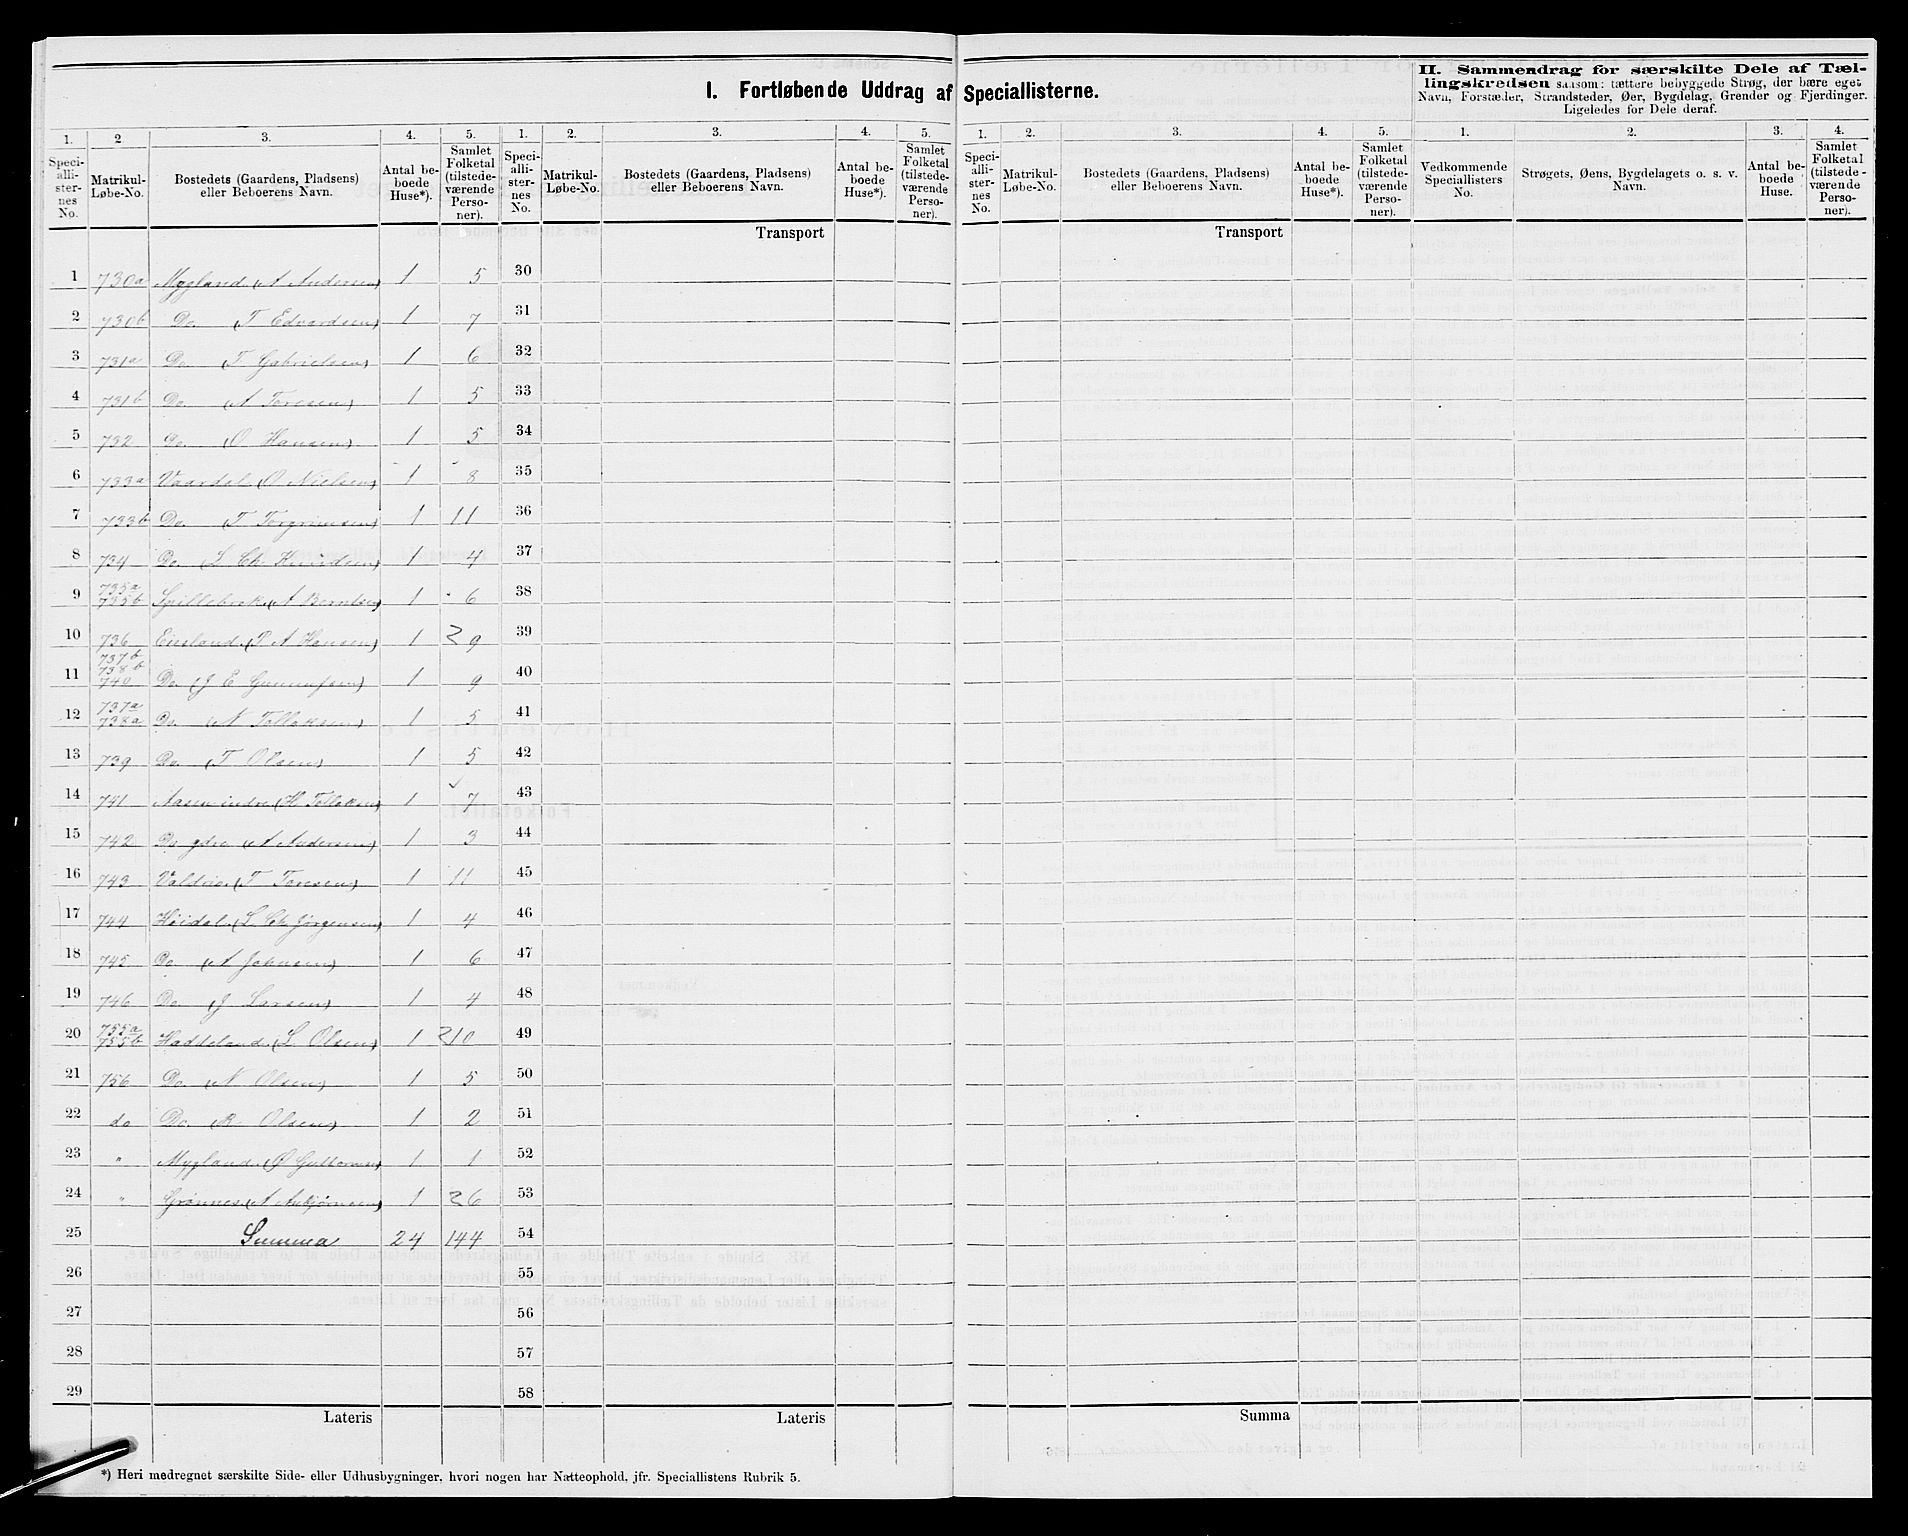 I. Fortløbende Uddrag af Speciallisterne.
II. Sammendrag for særskilte Dele af Tællingskredsen saasom: tættere bebyggede Strøg, der bære eget Navn, Forstæder, Strandsteder, Øer, Bygdelag, Grender og Fjerdinger. Ligeledes for Dele deraf.
1. 2 3. 4. 5. 1. 2. 3. 4. 5. 1. 2. 3. 4. 5. 1. 2. 3. 4.
Speciallisternes No. Matrikul-Løbe-No. Bostedets (Gaardens, Pladsens) eller Beboerens Navn. Antal beboede Huse*). Samlet Folketal (tilstedeværende Personer).
Speciallisternes No. Matrikul-Løbe-No. Bostedets (Gaardens, Pladsens) eller Beboerens Navn. Antal beboede Huse*). Samlet Folketal (tilstedeværende Personer).
Speciallisternes No. Matrikul-Løbe-No. Bostedets (Gaardens, Pladsens) eller Beboerens Navn. Antal beboede Huse*). Samlet Folketal (tilstedeværende Personer).
Vedkommende Speciallisters No. Strøgets, Øens, Bygdelagets o. s. v. Navn. Antal beboede Huse. Samlet Folketal (tilstedeværende Personer).
Transport Transport
1 730a Mygland (A Andersen) 1 5 30
2 730b Do. (T Edvardsen) 1 7 31
3 731a Do. (T. Gabrielsen) 1 6 32
4 731b Do. (A Toresen) 1 5 33
5 732 Do. (O Hansen) 1 5 34
6 733a Vaardal (O Nielsen) 1 8 35
7 733b Do. (T Torgrimsen) 1 11 36
8 734 Do. (S Ch. Knudsen) 1 4 37
9 735a 735b (A Berntsen) 1 6 38
10 736 Eiesland (P A Hansen) 1 2 9 39
11 737b 738b 740 Do. (J E Gunnufsen) 1 9 40
12 737a 738a Do. (N Tollaksen) 1 5 41
13 739 Do. (T Olsen) 1 5 42
14 741 Aasen indre (H Tollaksen) 1 7 43
15 742 Do ydre (A Andersen) 1 3 44
16 743 (T Toresen) 1 11 45
17 744 Høidal (L Ch Jørgensen) 1 4 46
18 745 Do (A Johnsen) 1 6 47
19 746 Do (J Larsen) 1 4 48
20 755a 755b Haddeland (L Olsen) 1 2 10 49
21 756 Do. (N Olsen) 1 5 50
22 do Do (R Olsen) 1 2 51
23 " Mygland (Ø Guttormsen) 1 1 52
24 " Grønnes (A Asbjørnsen) 1 2 6 53
25 Summa 24 144 54
26 55
27 56
28 57
29 58
Lateris Lateris Summa
*) Heri medregnet særskilte Side- eller Udhusbygninger, hvori nogen har Natteophold, jfr. Speciallistens Rubrik 5.